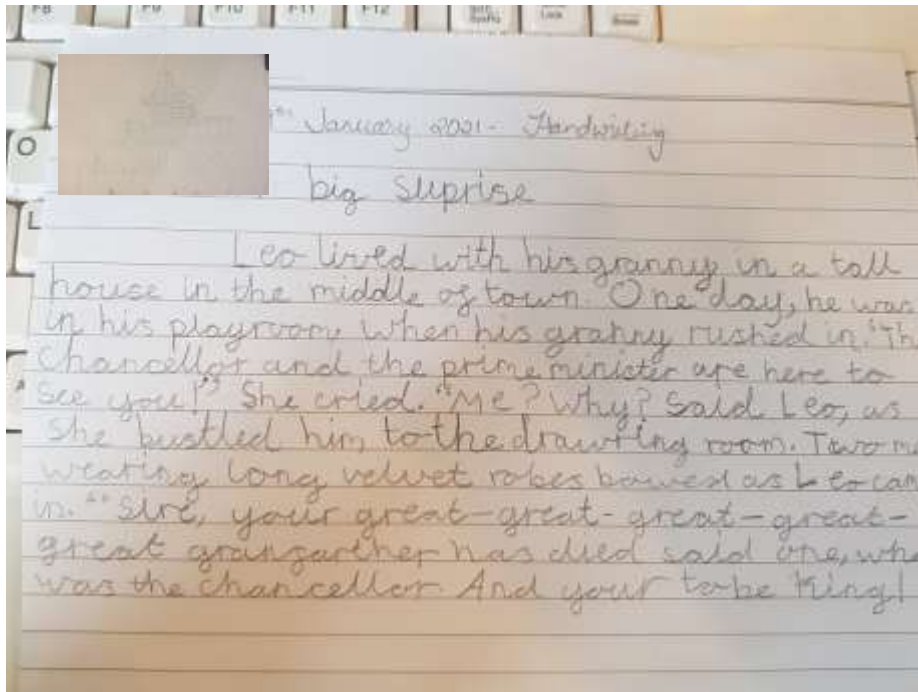 F8 F9 F10 F11 F12
Lock
January 2021 - Handwriting
big suprise
Leo lived with his granny in a tall
house in the middle of town. One day, he was
in his playroom when his granny rushed in. "Th
Chancellor and the prime minister are here to
see you!" She cried. "Me? Why? Said Leo, as
She bustled him to the drawring room. Two m
wearing long velvet robes bowed as Leo cam
in. "Sire, your great-great-great-great-
great has died said one, who
was the chancellor. And your to be King!
O
L